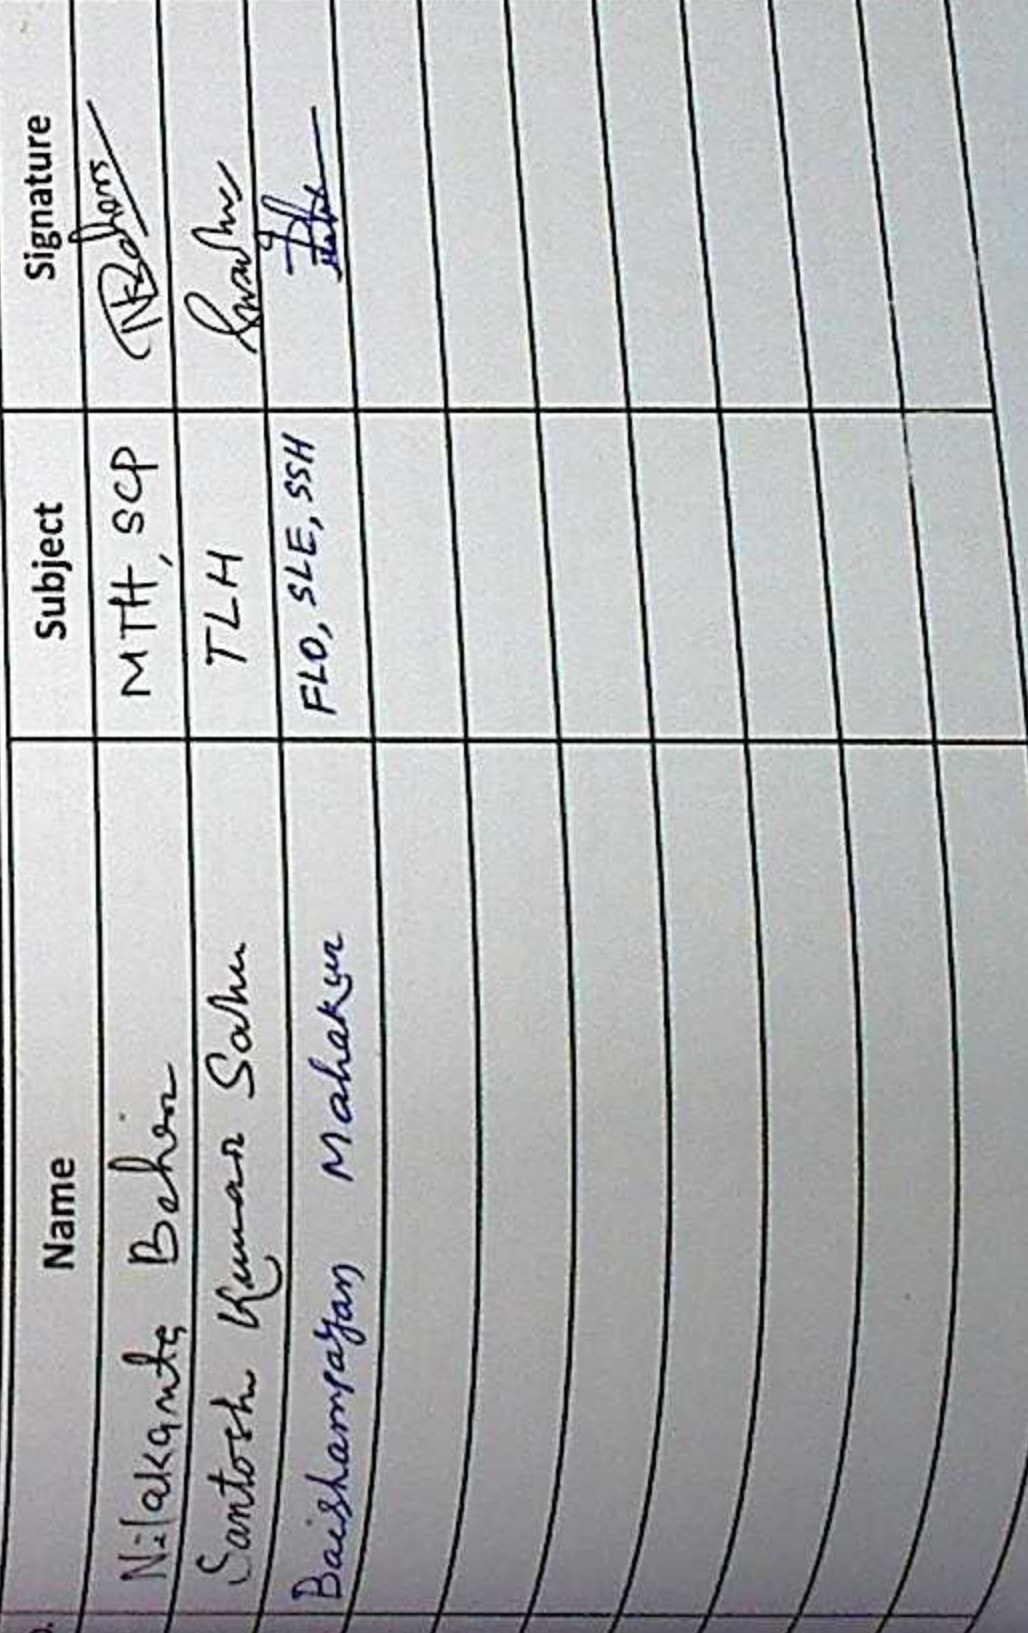 Name Subject Signature
Nilakanta Behera MTH, SCP
Santosh Kumar Sahu TLH
Baishampayan Mahakur FLO, SLE, SSH